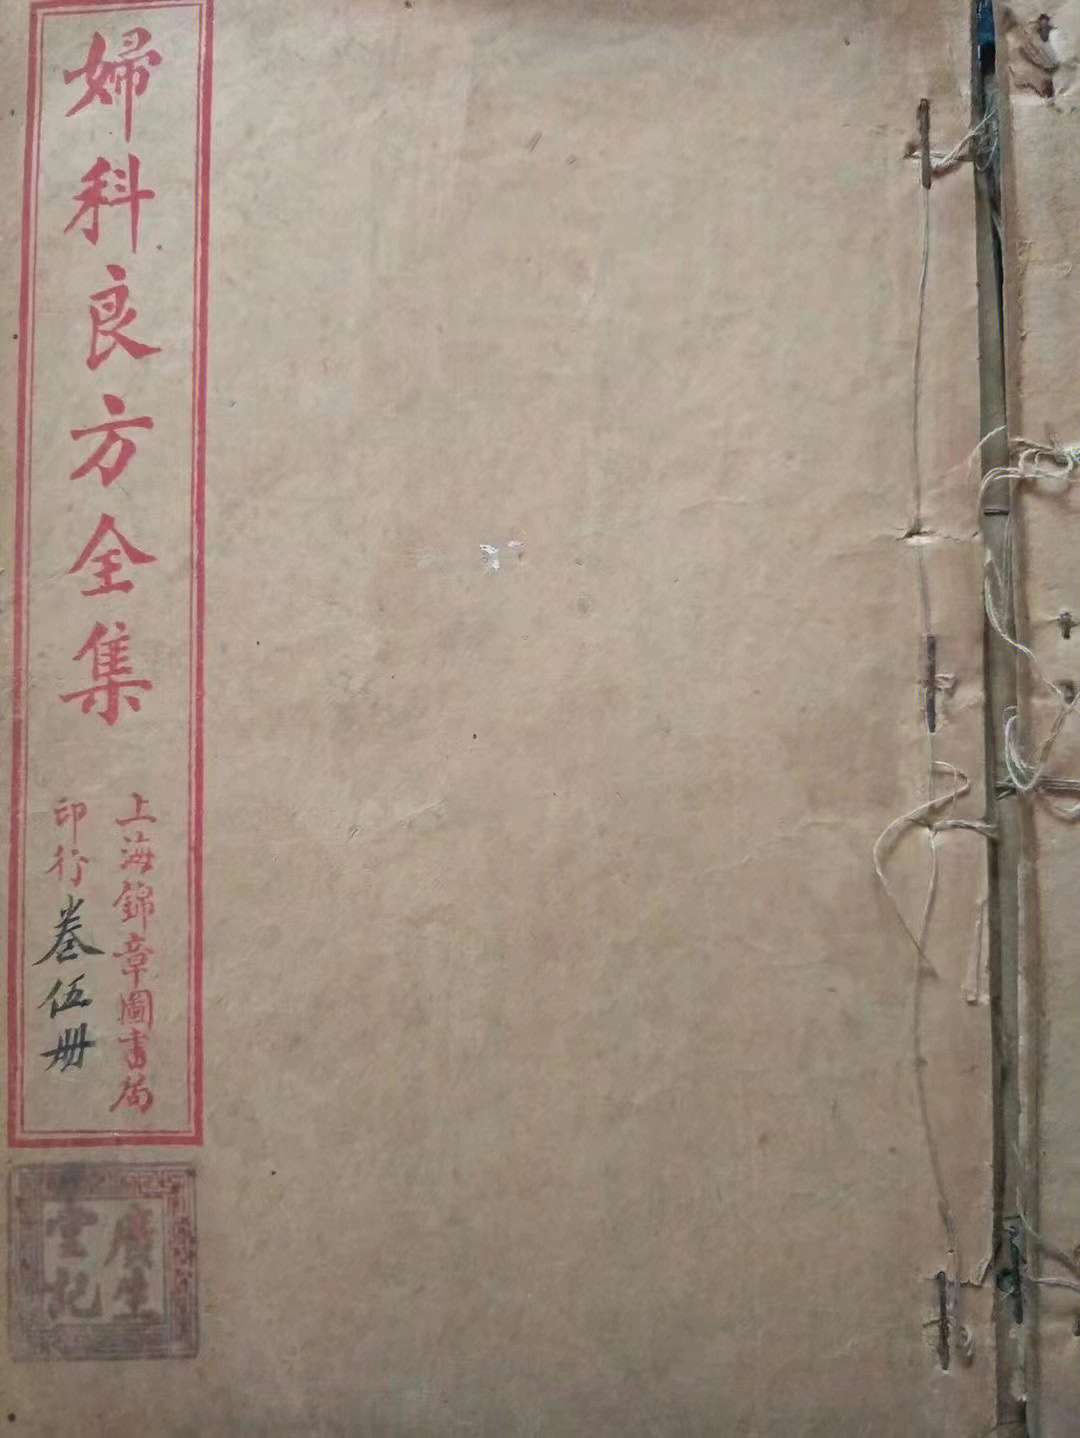 婦科良方全集
上海錦章圖書局
印行
卷伍册
廣生
堂記